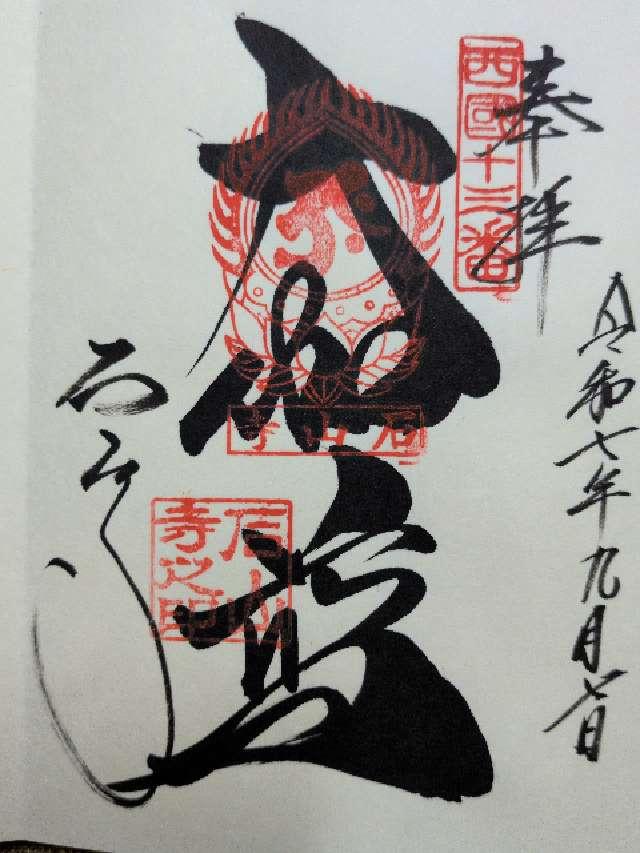 奉拝
西國十三番
令和七年九月七日
大伽藍
石山寺
石山寺之印
石山寺